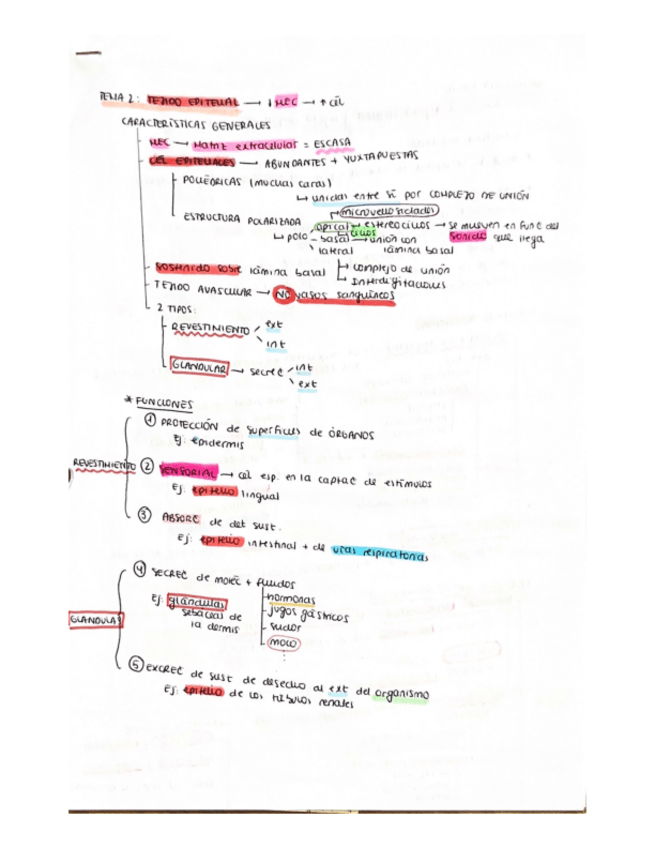 TEMA 2: TEJIDO EPITELIAL → ↓ MEC → ↑ cél
CARACTERÍSTICAS GENERALES
MEC → Matriz extracelular = ESCASA
CÉL EPITELIALES → ABUNDANTES + YUXTAPUESTAS
POLIÉDRICAS (muchas caras)
↳ unidas entre sí por COMPLEJO DE UNIÓN
microvellosidades
ESTRUCTURA POLARIZADA
apical → estereocilios → se mueven en func del
cilios
sonido que llega
↳ polo
basal → unión con
lámina basal
lateral
complejo de unión
Interdigitaciones
SOSTENIDO sobre lámina basal
TEJIDO AVASCULAR → NO vasos sanguíneos
2 TIPOS:
REVESTIMIENTO
ext
int
GLANDULAR → secrec
int
ext
* FUNCIONES
REVESTIMIENTO
① PROTECCIÓN de superficies de ÓRGANOS
Ej: epidermis
② SENSORIAL → cél esp. en la captac de estímulos
Ej: epitelio lingual
③ ABSORC de det sust.
Ej: epitelio intestinal + de vías respiratorias
GLANDULAR
④ SECREC de moléc + fluidos
Ej: glándulas
sebáceas de
la dermis
hormonas
jugos gástricos
sudor
moco
⋮
⑤ EXCREC de sust de desecho al ext del organismo
Ej: epitelio de los túbulos renales